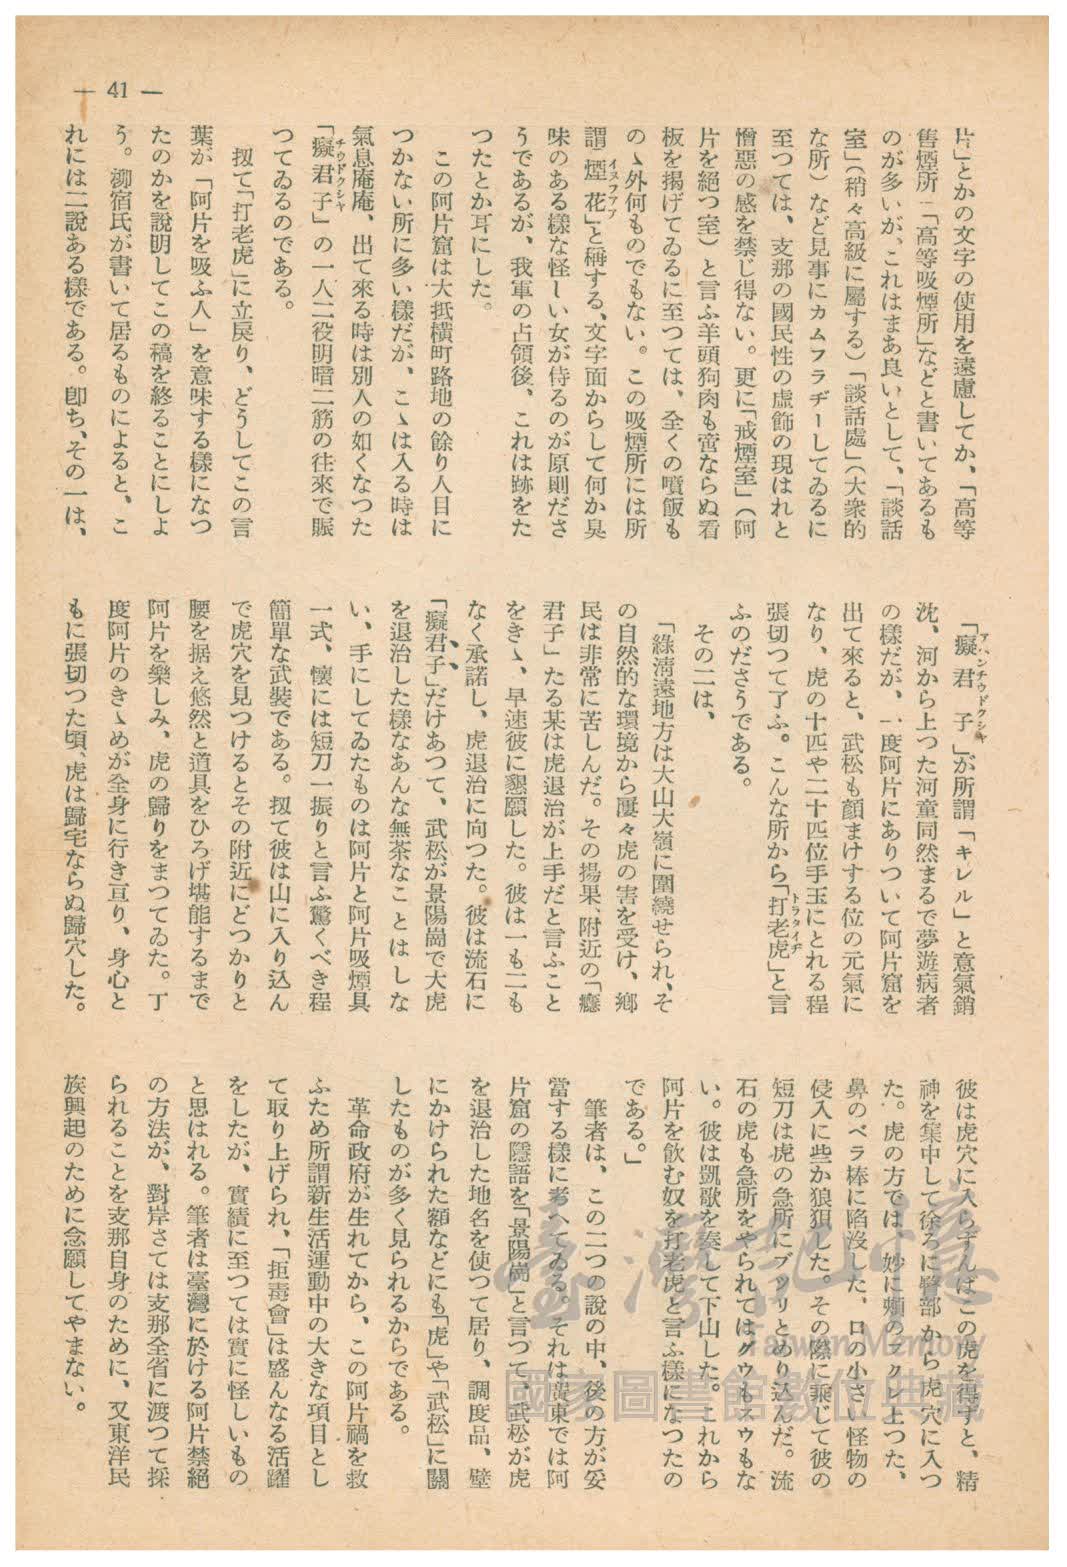 — 41 —
片」とかの文字の使用を遠慮してか、「高等
售煙所」「高等吸煙所」などと書いてあるも
のが多いが、これはまあ良いとして、「談話
室」（稍々高級に屬する）「談話處」（大衆的
な所）など見事にカムフラヂーしてゐるに
至つては、支那の國民性の虛飾の現はれと
憎惡の感を禁じ得ない。更に「戒煙室」（阿
片を絕つ室）と言ふ羊頭狗肉も啻ならぬ看
板を揭げてゐるに至つては、全くの噴飯も
のゝ外何ものでもない。この吸煙所には所
謂「煙花」と稱する、文字面からして何か臭
味のある樣な怪しい女が侍るのが原則ださ
うであるが、我軍の占領後、これは跡をた
つたとか耳にした。
この阿片窟は大抵橫町路地の餘り人目に
つかない所に多い樣だが、こゝは入る時は
氣息庵庵、出て來る時は別人の如くなつた
「癡君子」の一人二役明暗二筋の往來で賑
つてゐるのである。
扨て「打老虎」に立戾り、どうしてこの言
葉が「阿片を吸ふ人」を意味する樣になつ
たのかを說明してこの稿を終ることにしよ
う。漷宿氏が書いて居るものによると、こ
れには二說ある樣である。卽ち、その一は、
「癡君子」が所謂「キレル」と意氣銷
沈、河から上つた河童同然まるで夢遊病者
の樣だが、一度阿片にありついて阿片窟を
出て來ると、武松も顏まけする位の元氣に
なり、虎の十匹や二十匹位手玉にとれる程
張切つて了ふ。こんな所から「打老虎」と言
ふのださうである。
その二は、
「綠淸遠地方は大山大嶺に圍繞せられ、そ
の自然的な環境から屢々虎の害を受け、鄉
民は非常に苦しんだ。その揚果、附近の「癮
君子」たる某は虎退治が上手だと言ふこと
をきゝ、早速彼に懇願した。彼は一も二も
なく承諾し、虎退治に向つた。彼は流石に
「癡君子」だけあつて、武松が景陽崗で大虎
を退治した樣なあんな無茶なことはしな
い、手にしてゐたものは阿片と阿片吸煙具
一式、懷には短刀一振りと言ふ驚くべき程
簡單な武裝である。扨て彼は山に入り込ん
で虎穴を見つけるとその附近にどつかりと
腰を据え悠然と道具をひろげ堪能するまで
阿片を樂しみ、虎の歸りをまつてゐた。丁
度阿片のきゝめが全身に行き亘り、身心と
もに張切つた頃、虎は歸宅ならぬ歸穴した。
彼は虎穴に入らずんばこの虎を得ずと、精
神を集中して徐ろに臀部から虎穴に入つ
た。虎の方では、妙に頰のフクレ上つた、
鼻のペラ棒に陷沒した、口の小さい怪物の
侵入に些か狼狽した。その隙に乘じて彼の
短刀は虎の急所にブツリとめり込んだ。流
石の虎も急所をやられてはグウもスウもな
い。彼は凱歌を奏して下山した。これから
阿片を飮む奴を打老虎と言ふ樣になつたの
である。」
筆者は、この二つの說の中、後の方が妥
當する樣に考へてゐる。それは廣東では阿
片窟の隱語を「景陽崗」と言つて、武松が虎
を退治した地名を使つて居り、調度品、壁
にかけられた額などにも「虎」や「武松」に關
したものが多く見られるからである。
革命政府が生れてから、この阿片禍を救
ふため所謂新生活運動中の大きな項目とし
て取り上げられ、「拒毒會」は盛んなる活躍
をしたが、實績に至つては實に怪しいもの
と思はれる。筆者は臺灣に於ける阿片禁絕
の方法が、對岸さては支那全省に渡つて採
られることを支那自身のために、又東洋民
族興起のために念願してやまない。
臺灣記憶
Taiwan Memory
國家圖書館數位典藏
イヌフアア
チウドクシヤ
アヘンチウドクシヤ
トラタイヂ